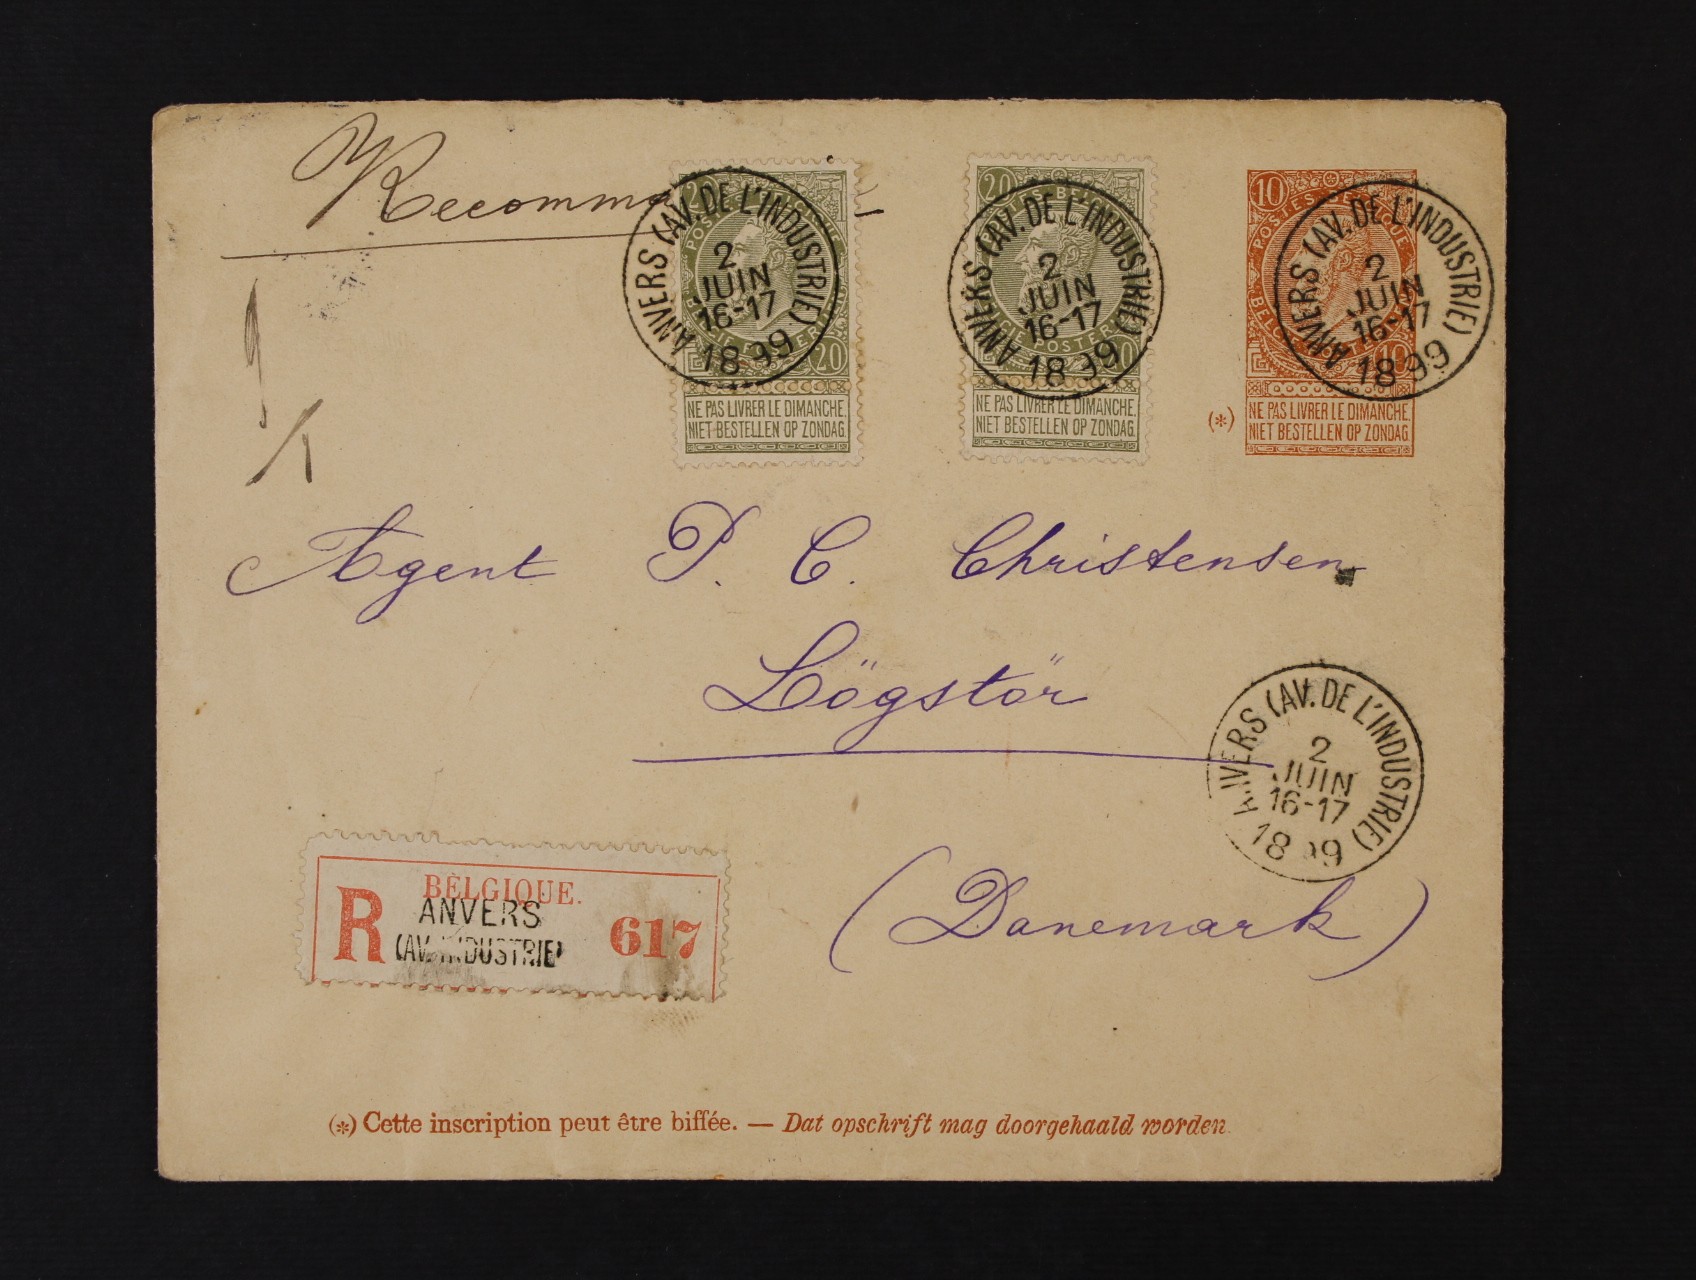 Recomma
20 20
POSTES BELGIQUE
ANVERS (AV. DE L'INDUSTRIE)
2
JUIN
16-17
1899
NE PAS LIVRER LE DIMANCHE.
NIET BESTELLEN OP ZONDAG.
20
ANVERS (AV. DE L'INDUSTRIE)
2
JUIN
16-17
1899
NE PAS LIVRER LE DIMANCHE.
NIET BESTELLEN OP ZONDAG.
10 10
POSTES BELGIQUE
ANVERS (AV. DE L'INDUSTRIE)
2
JUIN
16-17
1899
(*) NE PAS LIVRER LE DIMANCHE.
NIET BESTELLEN OP ZONDAG.
Agent P. C. Christensen
Lögstör
ANVERS (AV. DE L'INDUSTRIE)
2
JUIN
16-17
1899
(Danemark)
BELGIQUE.
R ANVERS 617
(AV. INDUSTRIE)
(*) Cette inscription peut être biffée. — Dat opschrift mag doorgehaald worden.